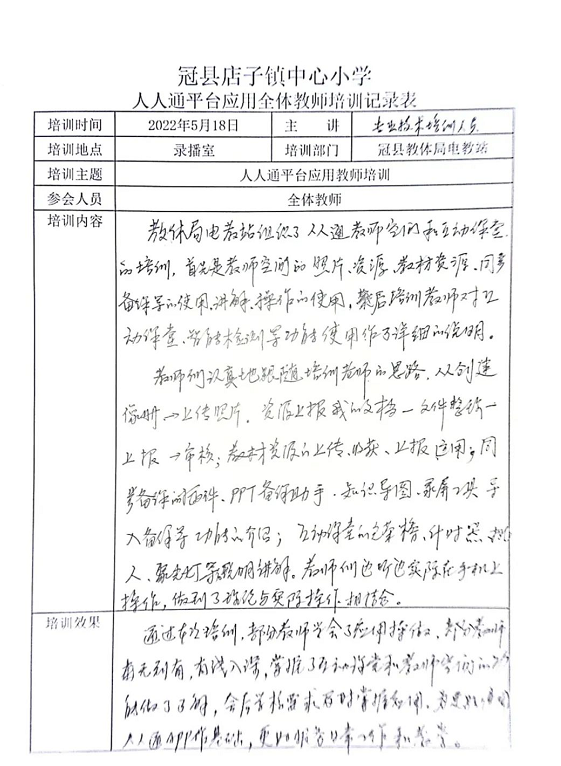 冠县店子镇中心小学
人人通平台应用全体教师培训记录表
培训时间 2022年5月18日 主 讲 专业技术培训人员
培训地点 录播室 培训部门 冠县教体局电教站
培训主题 人人通平台应用教师培训
参会人员 全体教师
培训内容
教体局电教站组织了人人通教师空间和互动课堂
的培训，首先是教师空间的照片、资源、教材资源、同步
备课等的使用、讲解、操作的使用，最后培训教师对互
动课堂、智能检测等功能使用作了详细的说明。
教师们认真地跟随培训教师的思路，从创建
像册→上传照片，资源上报我的文档—文件整理—
上报→审核；教材资源的上传、收获、上报运用；同
步备课的画件、PPT备课助手、知识导图、录屏工具导
入备课等功能的介绍；互动课堂的 计时器
人、聚光灯等说明讲解。教师们边听边实际在手机上
操作，做到了理论与实际操作相结合。
培训效果
通过本次培训，部分教师学会了应用操作，部分教师
有无到有，由浅入深，掌握了互动课堂和教师空间的
能做了了解，会后学校要求及时掌握应用，
人人通APP作基础，更好服务日常工作和教学。